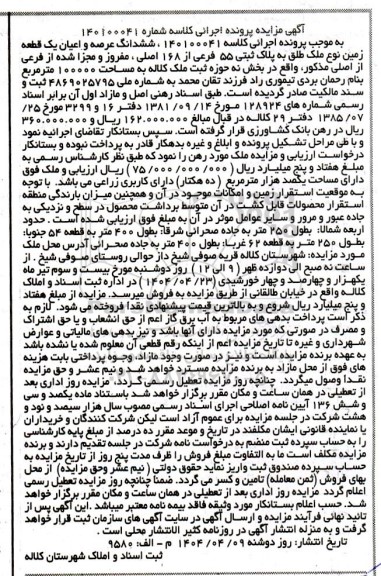 آگهی مزایده پرونده اجرائی کلاسه شماره ۱۴۰۱۰۰۰۴۱
به موجب پرونده اجرائی کلاسه ۱۴۰۱۰۰۰۴۱ ، ششدانگ عرصه و اعیان یک قطعه
زمین نوع ملک طلق به پلاک ثبتی ۵۵ فرعی از ۱۶۸ اصلی ، مفروز و مجزا شده از فرعی
از اصلی مذکور، واقع در بخش نه حوزه ثبت ملک کلاله به مساحت ۱۰۰۰۰۰ مترمربع
بنام رحمان بردی تیموری راد فرزند تقان محمد به شماره ملی ۴۸۶۹۰۲۵۷۹۵ ثبت و
سند مالکیت صادر گردیده است. طبق اسناد رهنی اصل و مازاد اول آن برابر اسناد
رسمی شماره های ۱۲۸۹۲۴ مورخ ۱۳۸۱/۰۹/۱۴ دفتر ۱۶ و ۳۲۹۹ مورخ ۲۵/
۱۳۸۵/۰۷ دفتر ۲۹ کلاله در قبال مبالغ ۱۶۲.۰۰۰.۰۰۰ ریال و ۳۶۰.۰۰۰.۰۰۰
ریال در رهن بانک کشاورزی قرار گرفته است. سپس بستانکار تقاضای اجرائیه نمود
و با طی مراحل تشکیل پرونده و ابلاغ و غیره بدهکار قادر به پرداخت نبوده و بستانکار
درخواست ارزیابی و مزایده ملک مورد رهن را نمود که طبق نظر کارشناس رسمی به
مبلغ هفتاد و پنج میلیارد ریال ( ۷۵/۰۰۰/۰۰۰/۰۰۰ ) ریال ارزیابی و ملک فوق
دارای مساحت یکصد هزار مترمربع ( ده هکتار) دارای کاربری زراعی می باشد. با توجه
به موقعیت استقرار زمین و امکانات موجود در آن و همچنین میزان بارندگی منطقه
استقرار محصولات قابل کشت در آن متوسط برداشت محصول در سطح و نزدیکی به
جاده عبور و مرور و سایر عوامل موثر در آن به مبلغ فوق ارزیابی شده است . حدود
اربعه شمالا: بطول ۲۵۰ متر به جاده صحرائی شرقا: بطول ۴۰۰ متر به قطعه ۵۴ جنوبا:
بطول ۲۵۰ متر به قطعه ۶۲ غربا: بطول ۴۰۰ متر به جاده صحرائی آدرس محل ملک
مورد مزایده: شهرستان کلاله قریه صوفی شیخ داز حوالی روستای صوفی شیخ . از
ساعت نه صبح الی دوازده ظهر ( ۹ الی ۱۲ ) روز دوشنبه مورخ بیست و سوم تیر ماه
یکهزار و چهارصد و چهار خورشیدی (۱۴۰۴/۰۴/۲۳ ) در اداره ثبت اسناد و املاک
کلاله واقع در خیابان طالقانی از طریق مزایده به فروش میرسد. مزایده از مبلغ هفتاد
و پنج میلیارد ریال شروع و به بالاترین قیمت پیشنهادی نقدا فروخته می شود. لازم به
ذکر است پرداخت بدهی های مربوط به آب برق گاز اعم از حق انشعاب و یا حق اشتراک
و مصرف در صورتی که مورد مزایده دارای آنها باشد و نیز بدهی های مالیاتی و عوارض
شهرداری و غیره تا تاریخ مزایده اعم از اینکه رقم قطعی آن معلوم شده یا نشده باشد
به عهده برنده مزایده است و نیز در صورت وجود مازاد، وجوه پرداختی بابت هزینه
های فوق از محل مازاد به برنده مزایده مسترد خواهد شد و نیم عشر و حق مزایده
نقدا وصول میگردد. چنانچه روز مزایده تعطیل رسمی گردد، مزایده روز اداری بعد
از تعطیلی در همان ساعت و مکان مقرر برگزار خواهد شد باستناد ماده یکصد و سی
و شش ۱۳۶ آیین نامه اصلاحی اجرای اسناد رسمی مصوب سال هزار سیصد و نود و
هشت شرکت در جلسه مزایده برای عموم آزاد است لیکن شرکت کنندگان و خریداران
یا نماینده قانونی ایشان مکلفند در تاریخ و موعد مقرر ده درصد از مبلغ پایه کارشناسی
را به حساب سپرده ثبت منضم به درخواست نامه شرکت در جلسه تقدیم دارند و برنده
مزایده مکلف است ما به التفاوت مبلغ فروش را ظرف مدت پنج روز از تاریخ مزایده به
حساب سپرده صندوق ثبت واریز نماید حقوق دولتی ( نیم عشر وحق مزایده) از محل
بهای فروش (ثمن معامله) تامین و کسر می گردد. ضمنا چنانچه روز مزایده تعطیل رسمی
اعلام گردد مزایده روز اداری بعد از تعطیلی در همان ساعت و مکان مقرر برگزار خواهد
شد. حسب اعلام بستانکار مورد وثیقه فاقد بیمه نامه معتبر میباشد. این آگهی پس از
تائید نهائی فرآیند مزایده و ارسال آگهی در سایت آگهی های سازمان ثبت قرار خواهد
گرفت و به منزله انتشار آگهی در روزنامه کثیر الانتشار محلی است.
تاریخ انتشار: روز دوشنبه ۱۴۰۴/۰۴/۰۹ م - الف: ۹۵۸۰
ثبت اسناد و املاک شهرستان کلاله